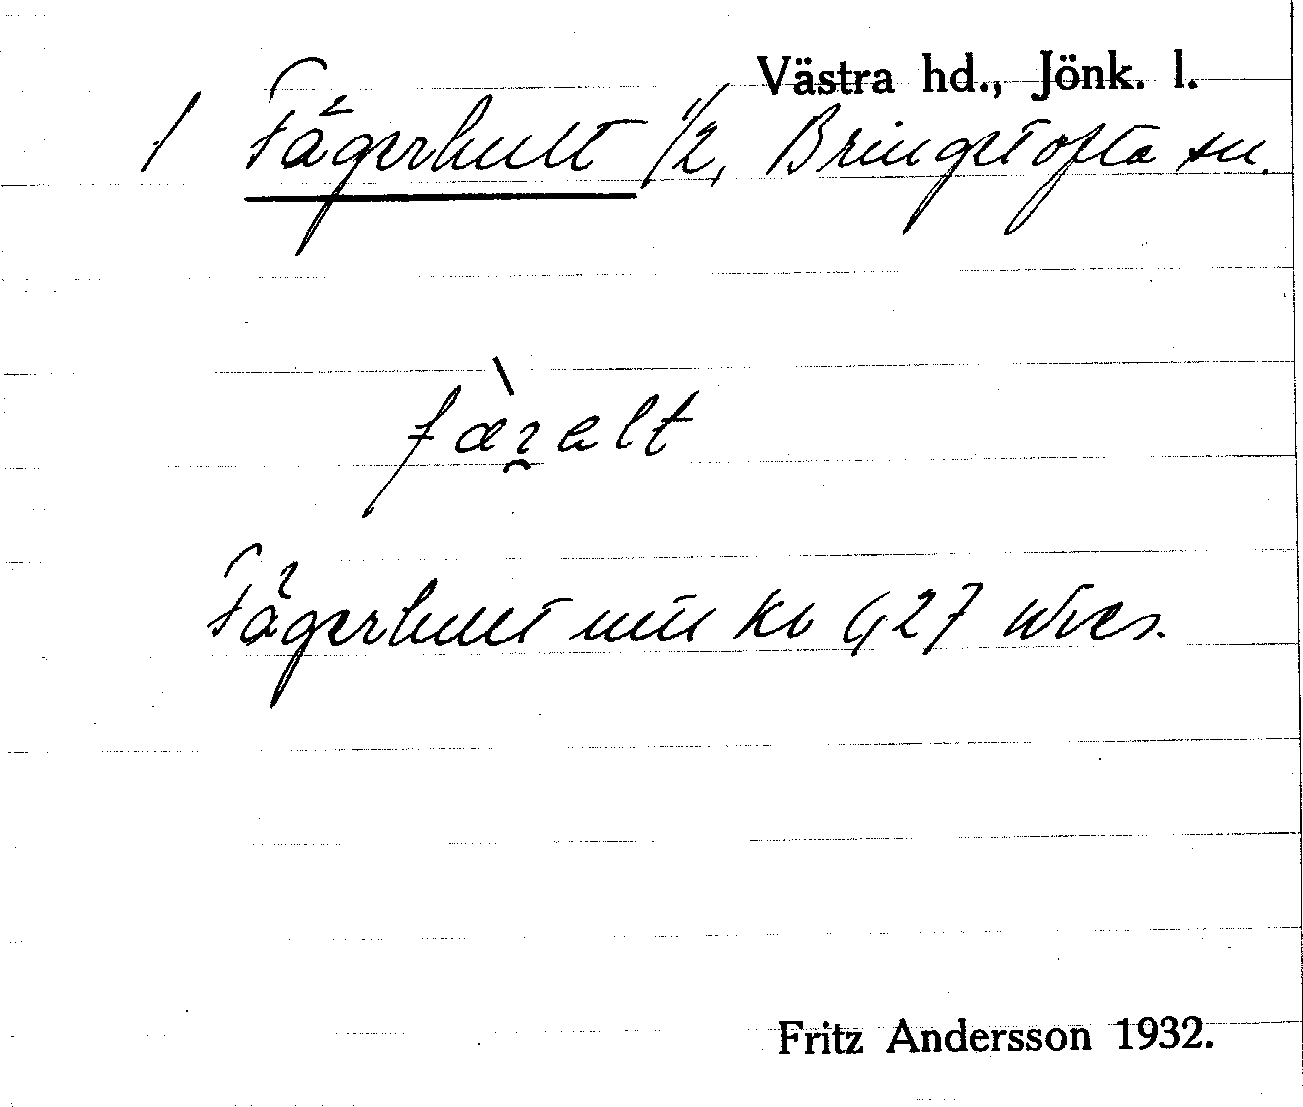 Västra hd., Jönk. l.
1 Fägerhult 1/2, Bringetofta sn.
Fägerhult mtl Kb
Fritz Andersson 1932.